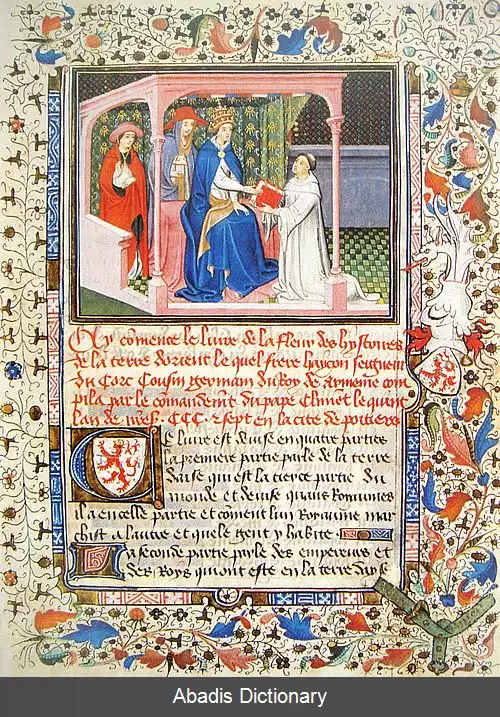 Cy cōmence le livre de la fleur des hystoires
de la terre dorient le quel frere hayton seigneur
du Corc Cousin germain du Roy de armenie com
pila par le comandemēt du pape Climēt le quint
lan de CCC. 7 sept en la cite de poitiers
Cest livre est devise en quatre parties
la premiere partie parle de la terre
dasie qui est la tierce partie du
monde et devise quans Royaumes
il a en celle partie et cōment lun Royaume mar
chist a lautre et quele gent y habite.
La seconde partie parle des empereurs et
des Roys qui ont este en la terre dasie
Abadis Dictionary